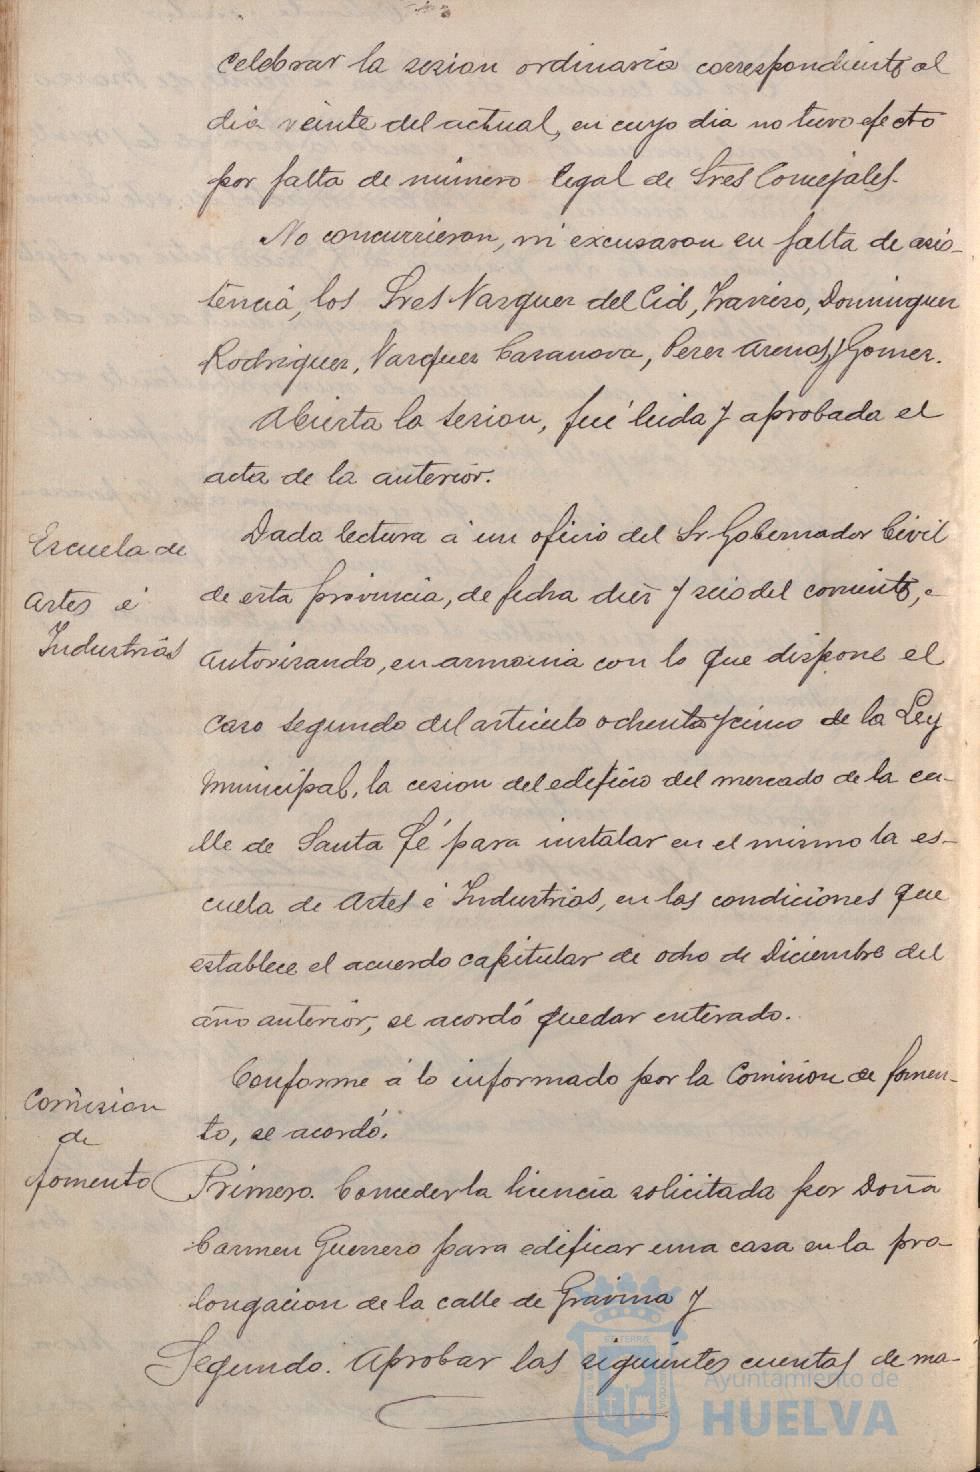 celebrar la sesion ordinaria correspondiente al
dia veinte del actual, en cuyo dia no tuvo efecto
por falta de número legal de Sres Concejales.
No concurrieron, ni excusaron su falta de asis-
tencia, los Sres Vazquez del Cid, Traviezo, Dominguez
Rodriguez, Vazquez Casanova, Perez Arenas y Gomez.
Abierta la sesion, fué leida y aprobada el
acta de la anterior.
Escuela de
Artes é
Industrias
Dada lectura á un oficio del Sr Gobernador Civil
de esta provincia, de fecha diez y seis del corriente,
autorizando, en armonia con lo que dispone el
caso segundo del articulo ochenta y cinco de la Ley
Municipal, la cesion del edificio del mercado de la ca-
lle de Santa Fé para instalar en el mismo la es-
cuela de Artes é Industrias, en las condiciones que
establece el acuerdo capitular de ocho de Diciembre del
año anterior, se acordó quedar enterado.
Comision
de
fomento
Conforme á lo informado por la Comision de fomen-
to, se acordó.
Primero. Conceder la licencia solicitada por Doña
Carmen Guerrero para edificar una casa en la pro-
longacion de la calle de Gravina y
Segundo. Aprobar las siguientes cuentas de ma-
Ayuntamiento de
HUELVA